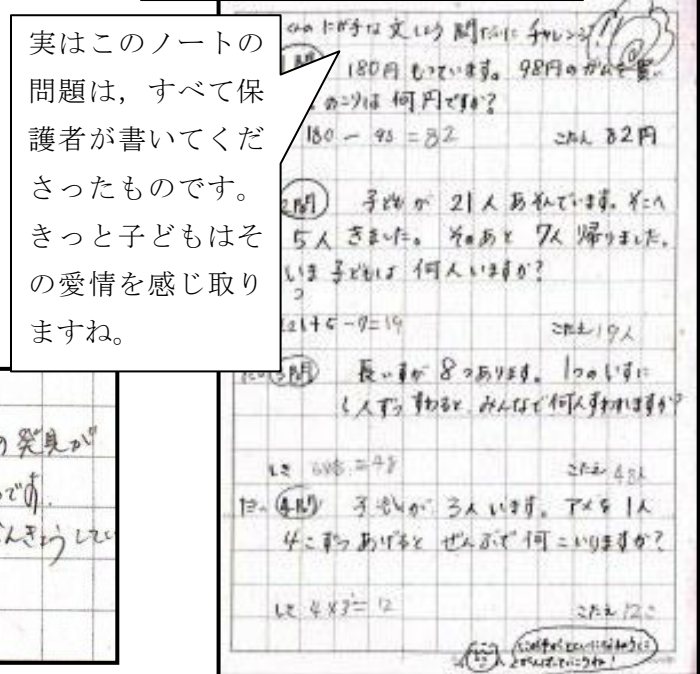 実はこのノートの
問題は，すべて保
護者が書いてくだ
さったものです。
きっと子どもはそ
の愛情を感じ取り
ますね。
くんの にが手な 文しょう 問だいに チャレンジ!!
180円 もっています。98円の ガムを 買い
のこりは 何円ですか?
180 - 98 = 82 こたえ 82円
2問 子どもが 21人 あそんでいます。そこへ
5人 きました。そのあと 7人 帰りました。
いま 子どもは 何人 いますか?
21+5-7=19 こたえ 19人
3問 長いすが 8つあります。1つの いすに
6人ずつ すわると、みんなで 何人すわれますか?
しき =48 こたえ 48人
4問 子どもが 3人 います。アメを 1人
4こずつ あげると ぜんぶで 何こ いりますか?
しき 4×3=12 こたえ 12こ
の発見が
です。